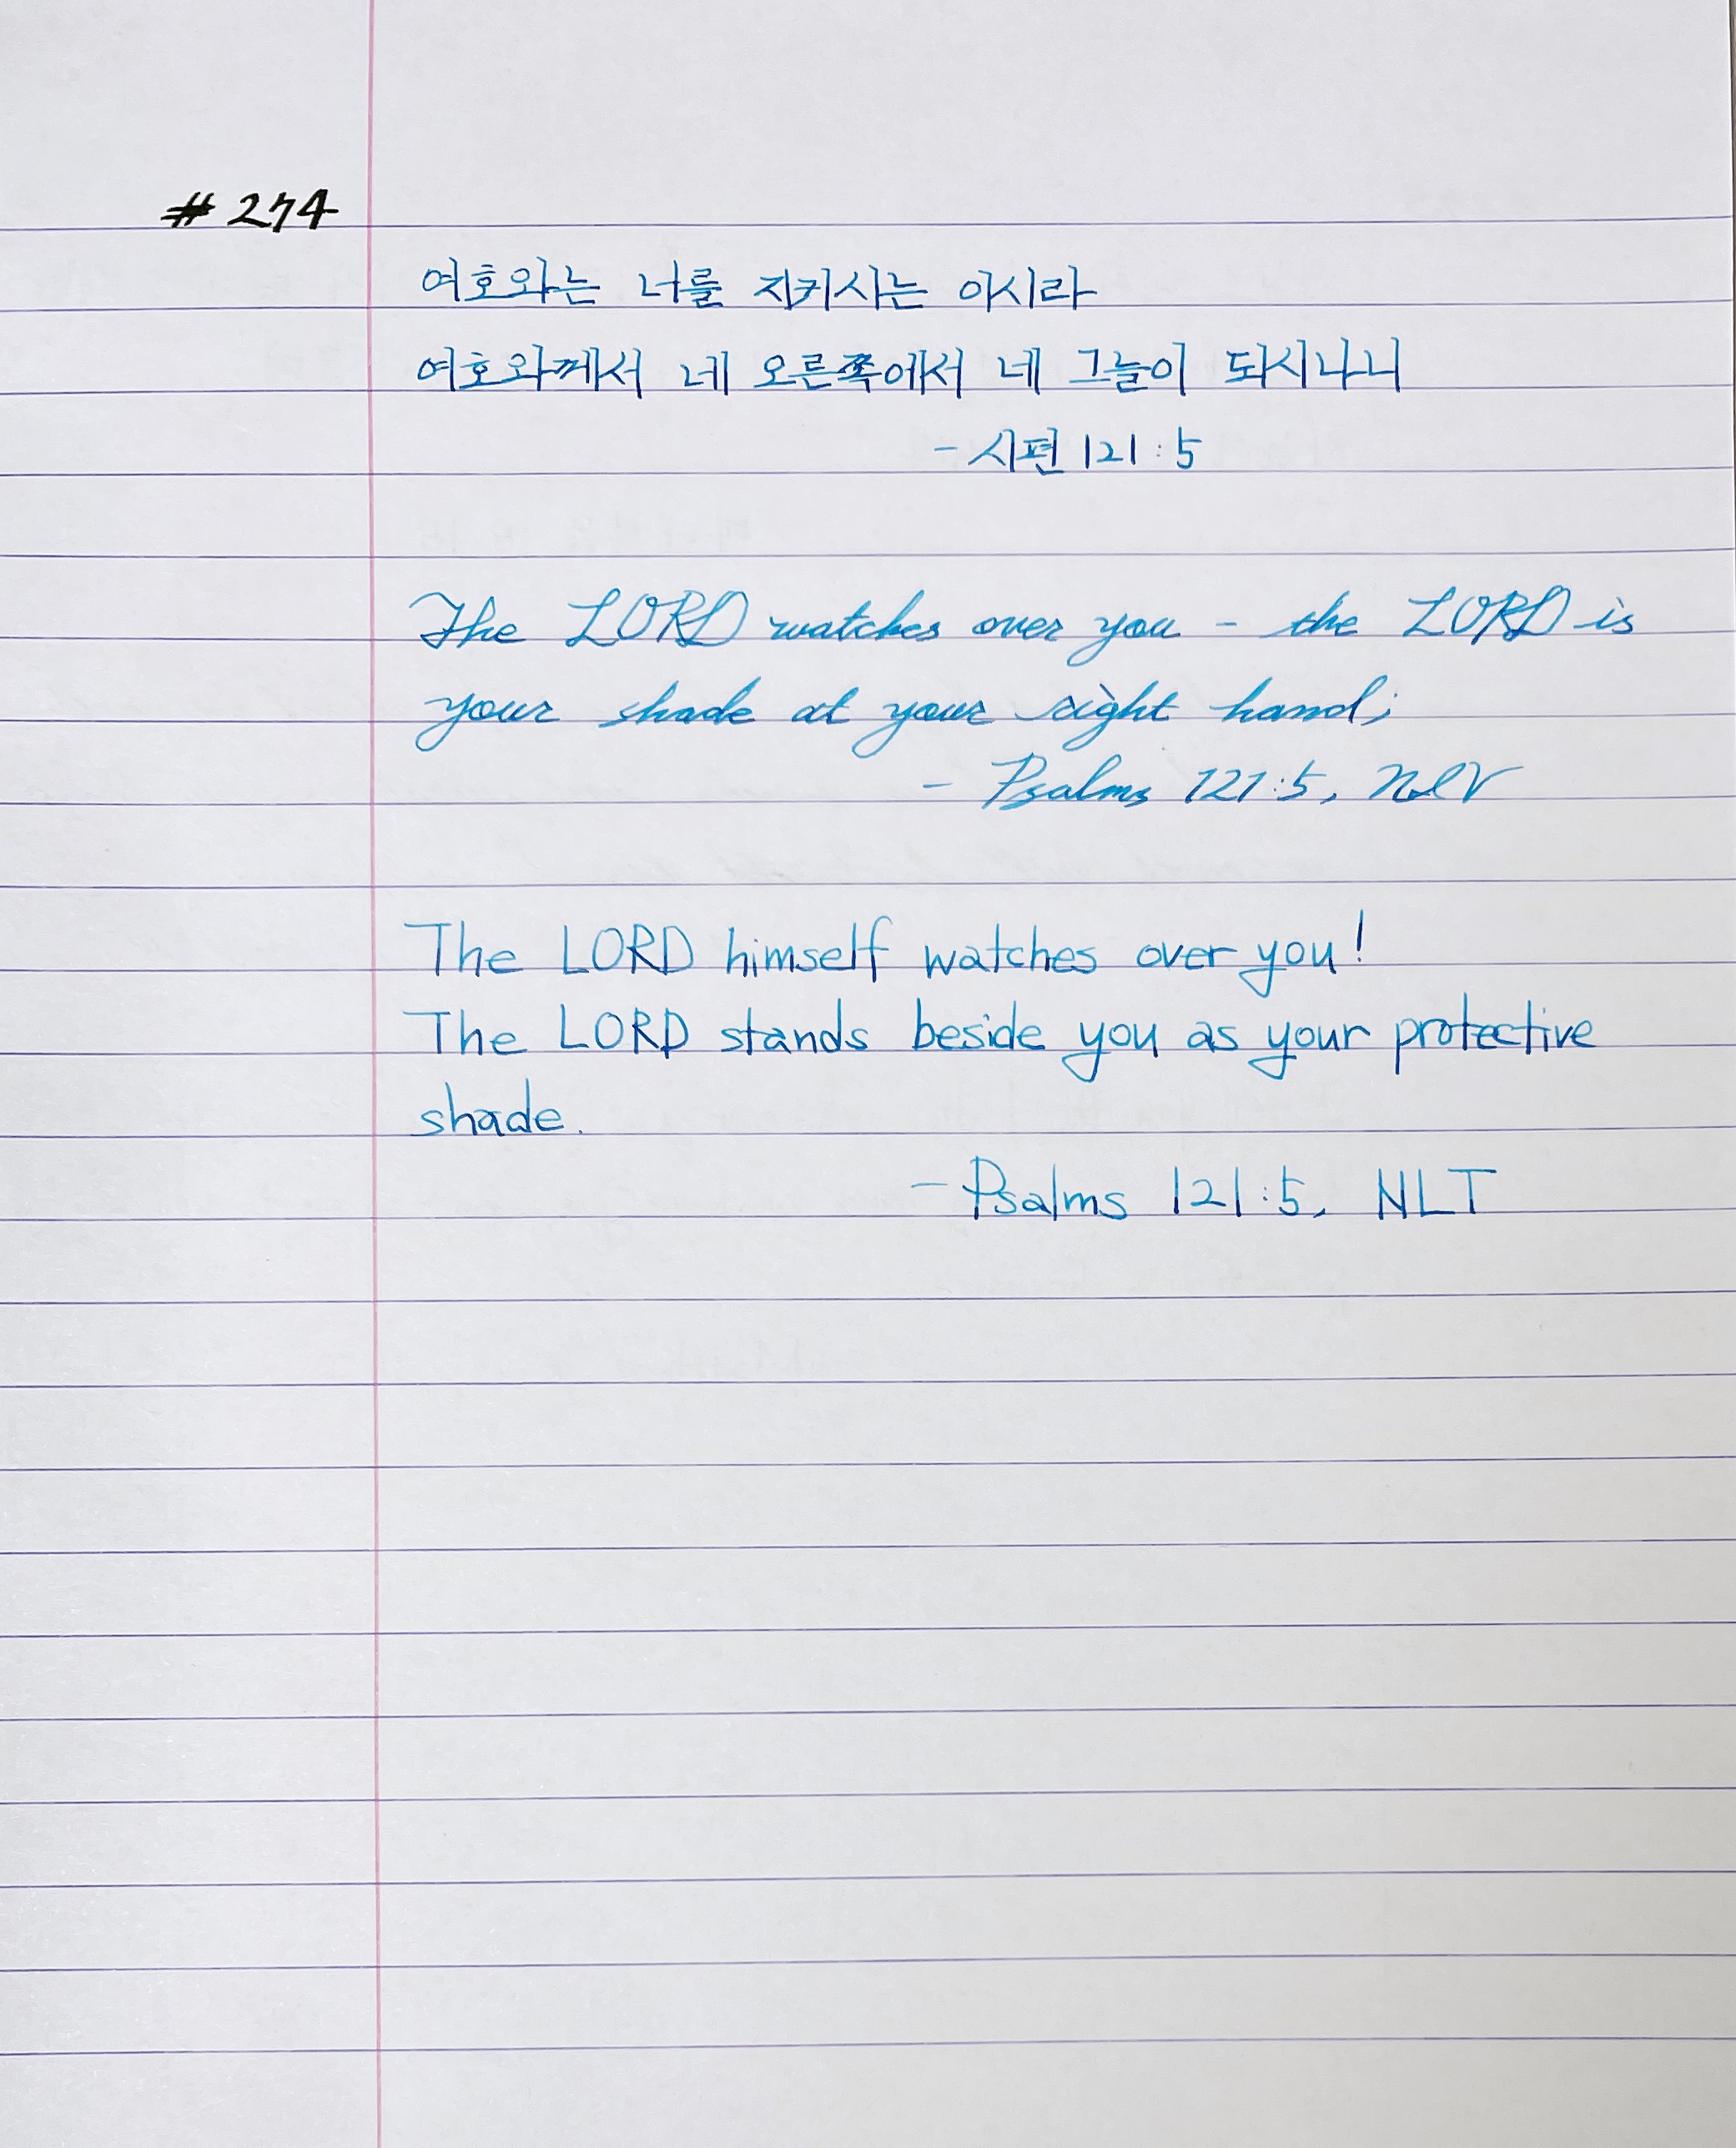 # 274
여호와는 너를 지키시는 이시라
여호와께서 네 오른쪽에서 네 그늘이 되시나니
- 시편 121:5
The LORD watches over you - the LORD is
your shade at your right hand;
- Psalms 121:5, NIV
The LORD himself watches over you!
The LORD stands beside you as your protective
shade.
- Psalms 121:5, NLT